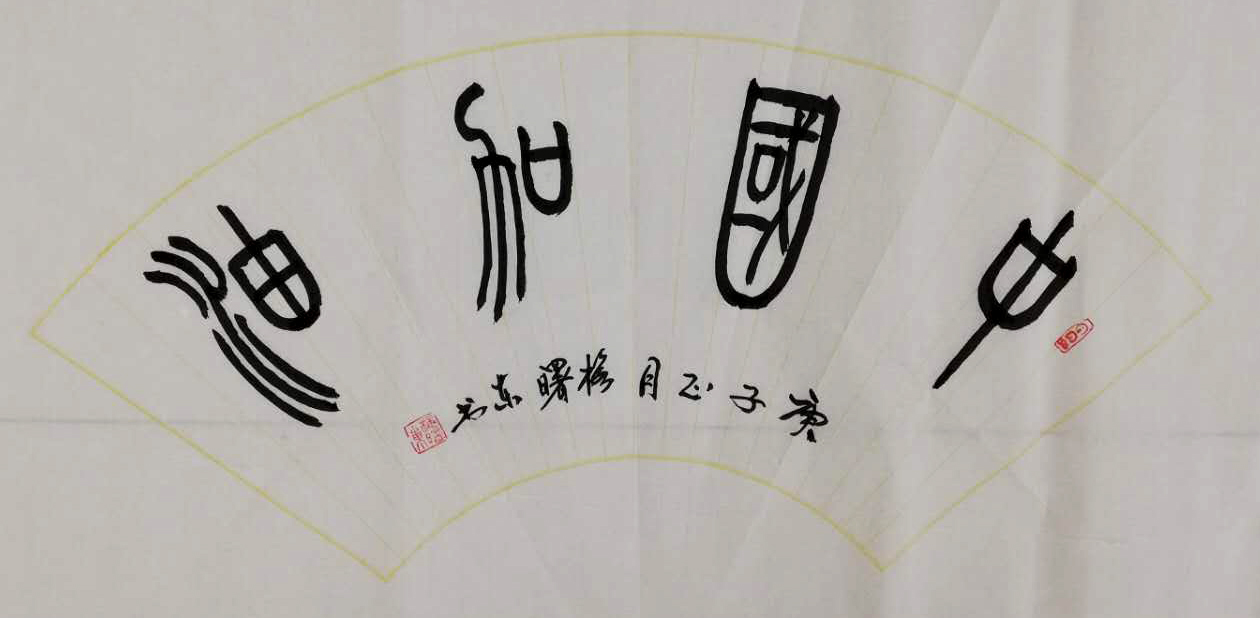 中國加油
庚子正月曙东书